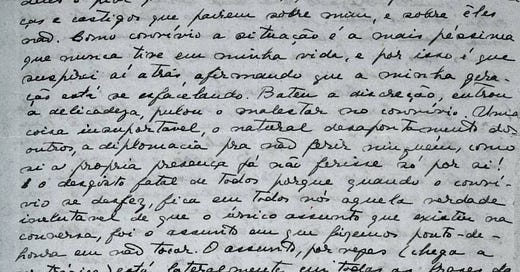 ças e castigos que pairem sobre mim, e sobre êles
não. Como convívio a situação é a mais péssima
que nunca tive em minha vida, e por isso é que
suspirei aí atrás, afirmando que a minha gera-
ção está se esfacelando. Bateu a discreção, entrou
a delicadeza, pulou o malestar no convívio. Uma
coisa insuportavel, o natural desapontamento dos
outros, a diplomacia pra não ferir ninguém, como
si a propria presença já não ferisse só por si!
E o desgôsto fatal de todos porque quando o conví-
vio se desfez, fica em todos nós aquela verdade
inelutavel de que o único assunto que existiu na
conversa, foi o assunto em que fizemos ponto-de-
honra em não tocar. O assunto, por vezes (chega a
está lateralmente em todas as frases do